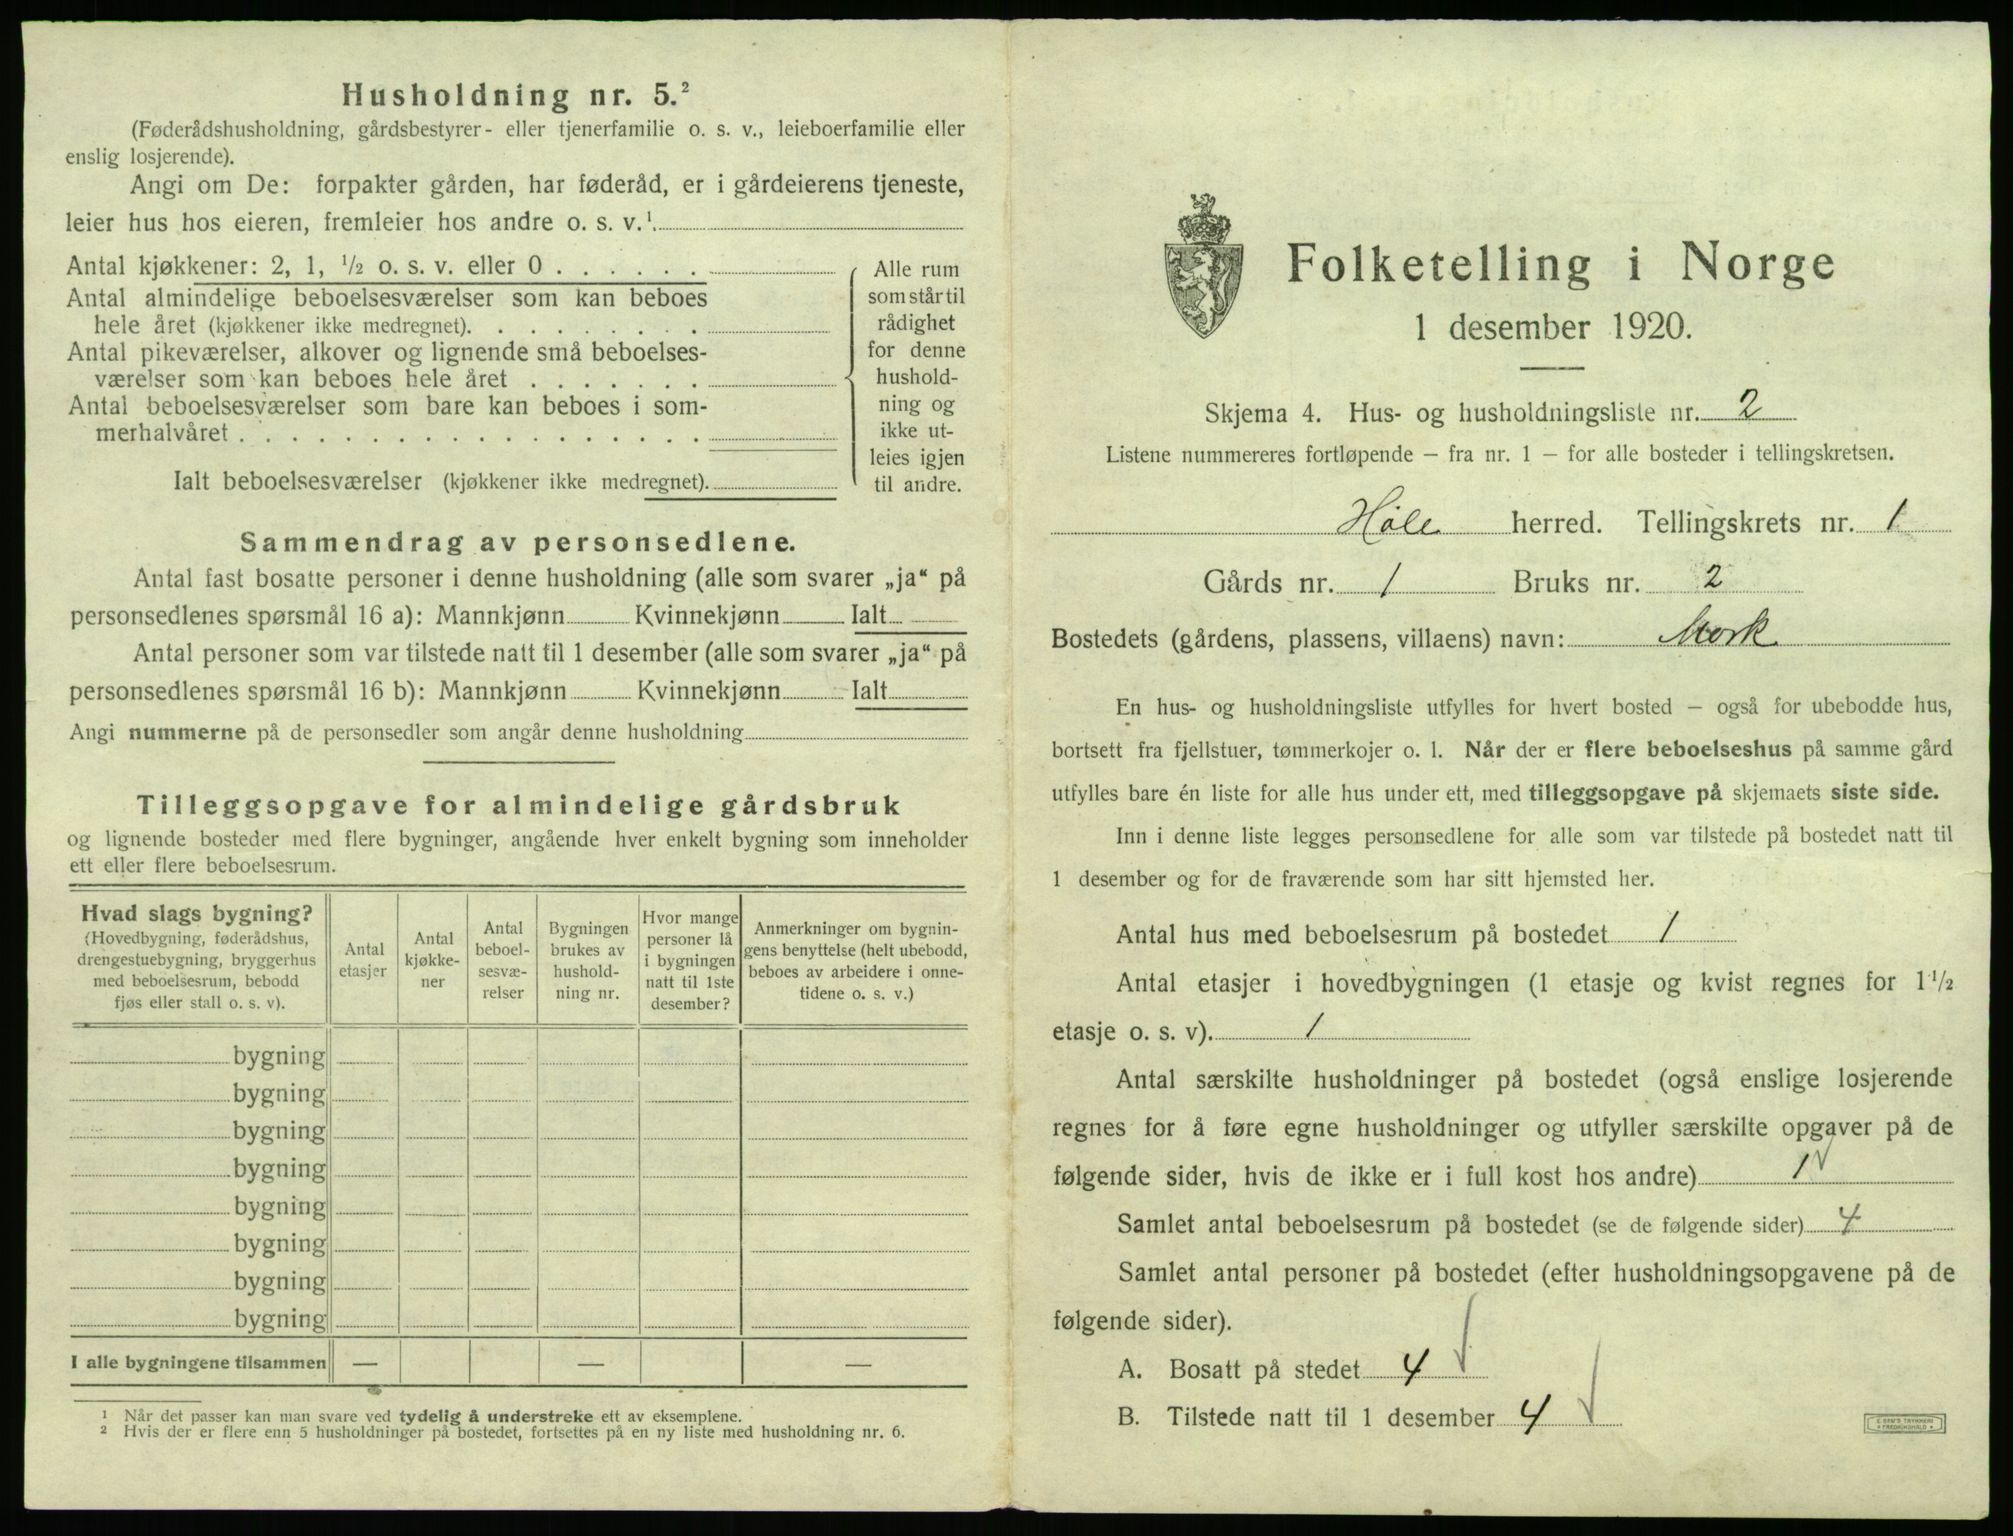 Husholdning nr. 5.²
(Føderådshusholdning, gårdsbestyrer- eller tjenerfamilie o. s. v., leieboerfamilie eller
enslig losjerende).
Angi om De: forpakter gården, har føderåd, er i gårdeierens tjeneste,
leier hus hos eieren, fremleier hos andre o. s. v.¹
Antal kjøkkener: 2, 1, ½ o. s. v. eller 0 . . . . . .
Antal almindelige beboelsesværelser som kan beboes
hele året (kjøkkener ikke medregnet). . . . . . . . .
Antal pikeværelser, alkover og lignende små beboelses-
værelser som kan beboes hele året . . . . . . .
Antal beboelsesværelser som bare kan beboes i som-
merhalvåret . . . . . . . . . . . . . . . . . .
Ialt beboelsesværelser (kjøkkener ikke medregnet).
Alle rum
som står til
rådighet
for denne
hushold-
ning og
ikke ut-
leies igjen
til andre.
Sammendrag av personsedlene.
Antal fast bosatte personer i denne husholdning (alle som svarer „ja“ på
personsedlenes spørsmål 16 a): Mannkjønn Kvinnekjønn Ialt
Antal personer som var tilstede natt til 1 desember (alle som svarer „ja“ på
personsedlenes spørsmål 16 b): Mannkjønn Kvinnekjønn Ialt
Angi nummerne på de personsedler som angår denne husholdning
Tilleggsopgave for almindelige gårdsbruk
og lignende bosteder med flere bygninger, angående hver enkelt bygning som inneholder
ett eller flere beboelsesrum.
Hvad slags bygning?
(Hovedbygning, føderådshus,
drengestuebygning, bryggerhus
med beboelsesrum, bebodd
fjøs eller stall o. s. v).
Antal
etasjer
Antal
kjøkke-
ner
Antal
beboel-
sesvæ-
relser
Bygningen
brukes av
hushold-
ning nr.
Hvor mange
personer lå
i bygningen
natt til 1ste
desember?
Anmerkninger om bygnin-
gens benyttelse (helt ubebodd,
beboes av arbeidere i onne-
tidene o. s. v.)
bygning
bygning
bygning
bygning
bygning
bygning
bygning
bygning
I alle bygningene tilsammen — — —
¹ Når det passer kan man svare ved tydelig å understreke ett av eksemplene.
² Hvis der er flere enn 5 husholdninger på bostedet, fortsettes på en ny liste med husholdning nr. 6.
Folketelling i Norge
1 desember 1920.
Skjema 4. Hus- og husholdningsliste nr. 2
Listene nummereres fortløpende – fra nr. 1 – for alle bosteder i tellingskretsen.
Høle herred. Tellingskrets nr. 1
Gårds nr. 1 Bruks nr. 2
Bostedets (gårdens, plassens, villaens) navn: Mork
En hus- og husholdningsliste utfylles for hvert bosted – også for ubebodde hus,
bortsett fra fjellstuer, tømmerkojer o. l. Når der er flere beboelseshus på samme gård
utfylles bare én liste for alle hus under ett, med tilleggsopgave på skjemaets siste side.
Inn i denne liste legges personsedlene for alle som var tilstede på bostedet natt til
1 desember og for de fraværende som har sitt hjemsted her.
Antal hus med beboelsesrum på bostedet 1
Antal etasjer i hovedbygningen (1 etasje og kvist regnes for 1½
etasje o. s. v). 1
Antal særskilte husholdninger på bostedet (også enslige losjerende
regnes for å føre egne husholdninger og utfyller særskilte opgaver på de
følgende sider, hvis de ikke er i full kost hos andre) 1
Samlet antal beboelsesrum på bostedet (se de følgende sider) 4
Samlet antal personer på bostedet (efter husholdningsopgavene på de
følgende sider).
A. Bosatt på stedet 4
B. Tilstede natt til 1 desember 4